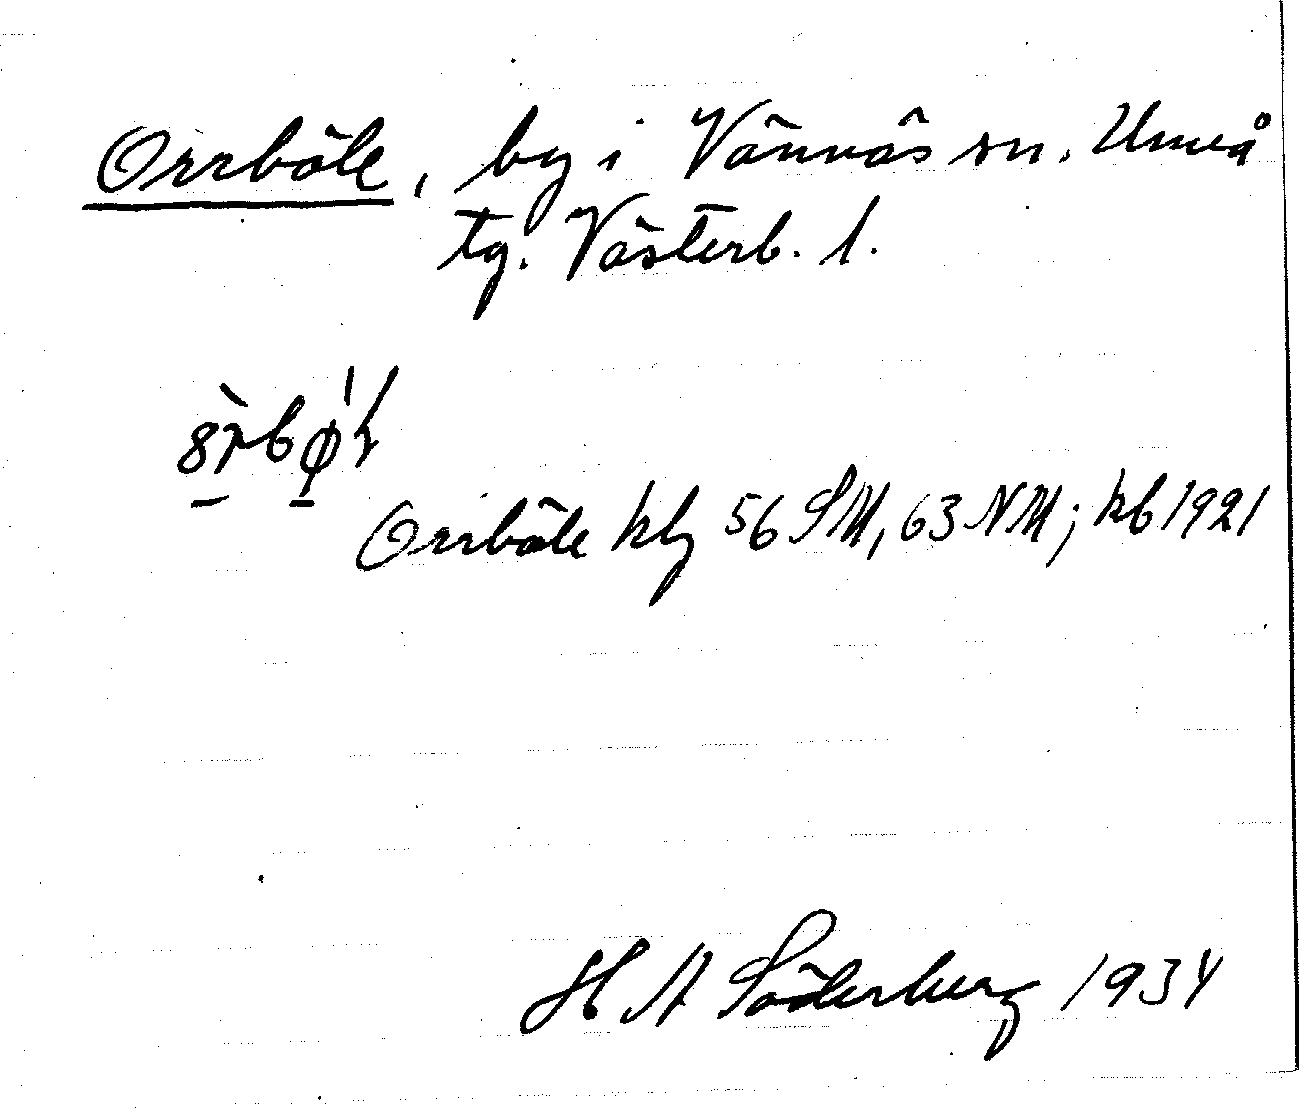 Orrböle, by i Vännäs sn. Umeå
tg. Västerb. l.
Orrböle kbg 56 SM, 63 NM; kb 1921
H A Söderberg 1934